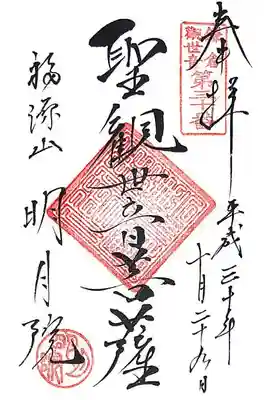 奉拝
鎌倉
觀世音
第三十番
平成三十年
十月二十九日
聖観世音菩薩
福源山
明月院